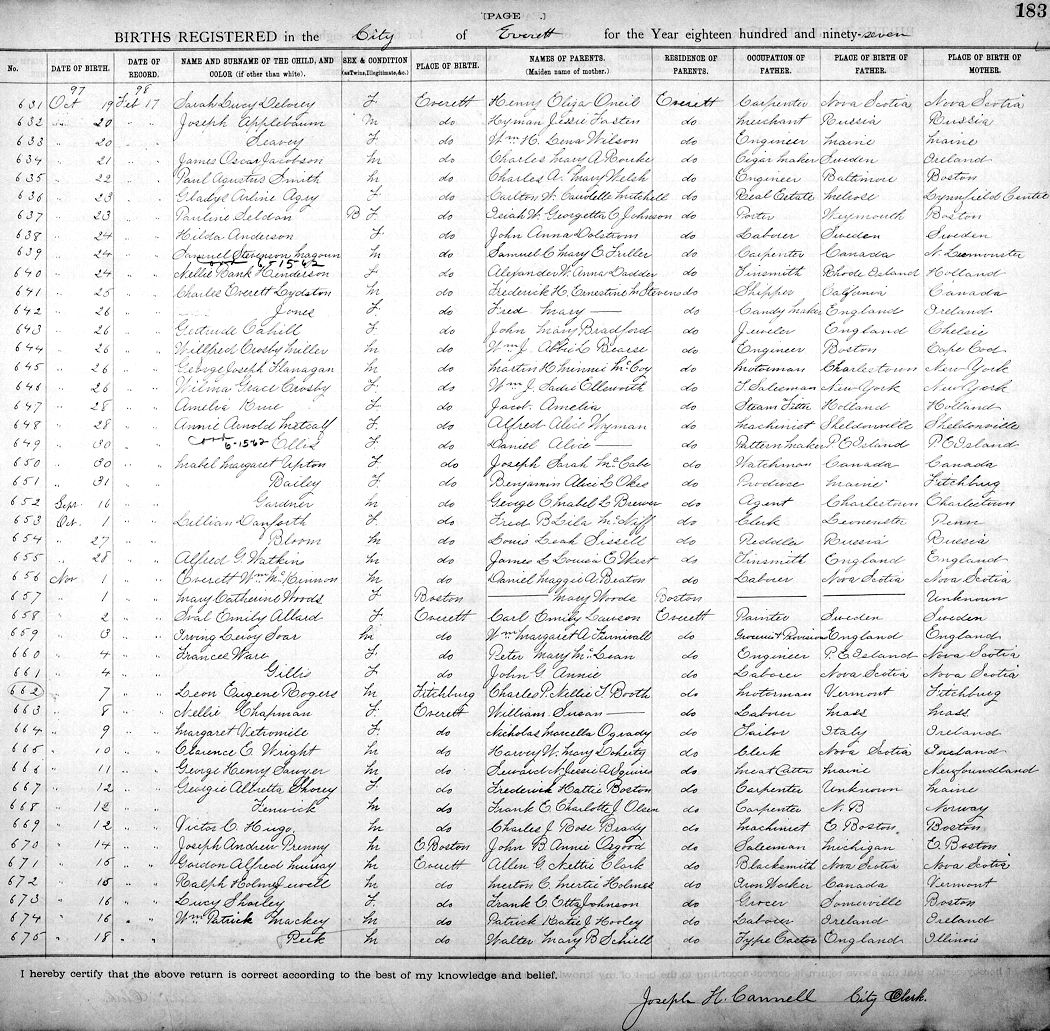 [PAGE .]
183
BIRTHS REGISTERED in the City of Everett for the Year eighteen hundred and ninety-seven
No. DATE OF BIRTH. DATE OF RECORD. NAME AND SURNAME OF THE CHILD, AND COLOR (if other than white). SEX & CONDITION (as Twins, Illegitimate, &c.) PLACE OF BIRTH. NAMES OF PARENTS. (Maiden name of mother.) RESIDENCE OF PARENTS. OCCUPATION OF FATHER. PLACE OF BIRTH OF FATHER. PLACE OF BIRTH OF MOTHER.
97 98
631 Oct 19 Feb 17 Sarah Lucy Delorey F. Everett Henry Eliza Oneil Everett Carpenter Nova Scotia Nova Scotia
632 " 20 " " Joseph Applebaum M do Hyman Jessie Fasten do Merchant Russia Russia
633 " 20 " " Seavey F. do Wm H. Lena Wilson do Engineer Maine Maine
634 " 21 " " James Oscar Jacobson M do Charles Mary A Rourke do Cigar Maker Sweden Ireland
635 " 22 " " Paul Agustus Smith M do Charles A. Mary Welsh do Engineer Baltimore Boston
636 " 23 " " Gladys Arline Agry F. do Carlton W. Candelle Mitchell do Real Estate Melrose Lynnfield Centre
637 " 23 " " Pauline Seldon B F. do Isiah W. Georgetta C Johnson do Porter Weymouth Boston
638 " 24 " " Hilda Anderson F. do John Anna Dolstrom do Laborer Sweden Sweden
639 " 24 " " Samuel Stevenson Magoun M do Samuel C Mary E Fuller do Carpenter Canada N. Leominster
6-15-62
640 " 24 " " Nellie Bank Henderson F. do Alexander W. Anna Dadder do Tinsmith Rhode Island Holland
641 " 25 " " Charles Everett Lydston M do Frederick H. Ernestine M Stevens do Shipper California Canada
642 " 26 " " — Jones F. do Fred Mary — do Candy Maker England Ireland
643 " 26 " " Getrude Cahill F. do John Mary Bradford do Jeweler England Chelsie
644 " 26 " " Willfred Crosby Miller M do Wm J. Abbie L Bearse do Engineer Boston Cape Cod
645 " 26 " " George Joseph Flanagan M do Martin H Minnie McCoy do Motorman Charlestown New York
646 " 26 " " Vilma Grace Crosby F. do Wm J Sadie Ellsworth do T. Salesman New York New York
647 " 28 " " Amelia F. do Jacob Amelia do Steam Fitter Holland Holland
648 " 28 " " Annie Arnold Metcalf F. do Alfred Alice Wyman do Machinist Sheldonville Sheldonville
649 " 30 " " 6-15-62 Ellis F. do Daniel Alice — do Pattern Maker P E Island P E Island
650 " 30 " " Mabel Margaret Upton F. do Joseph Sarah McCabe do Watchman Canada Canada
651 " 31 " " Bailey F. do Benjamin Alice L Okes do Produce Maine Fitchburg
652 Sept. 16 " " Gardner M do George C Mabel L Brewer do Agent Charlestown Charlestown
653 Oct. 1 " " Lillian Danforth F. do Fred B Lila McNiff do Clerk Leomenster Penn
654 " 27 " " Bloom M do Louis Leah Sissell do Peddler Russia Russia
655 " 28 " " Alfred G. Watkins M do James L Louisa E West do Tinsmith England England
656 Nov 1 " " Everett Wm McKinnon M do Daniel Maggie A. Beaton do Laborer Nova Scotia Nova Scotia
657 " 1 " " Mary Catherine Woods F. Boston — Mary Woods Boston — — Unknown
658 " 2 " " Sval Emily Allard F. Everett Carl Emily Lawson Everett Painter Sweden Sweden
659 " 3 " " Irving Leroy Soar M do Wm Margaret A Furnivall do Groceries & Provisions England England
660 " 4 " " Frances Ware F. do Peter Mary McLean do Engineer P. E Island Nova Scotia
661 " 4 " " Gillis F. do John G. Annie do Laborer Nova Scotia Nova Scotia
662 " 7 " " Leon Eugene Rogers M Fitchburg Charles P. Nellie T Booth do Motorman Vermont Fitchburg
663 " 8 " " Nellie Chapman F. Everett William Susan — do Laborer Mass Mass
664 " 9 " " Margaret Vetromile F. do Nicholas Marcella Ogrady do Tailor Italy Ireland
665 " 10 " " Clarence E. Wright M do Harvey W. Mary Doherty do Clerk Nova Scotia Ireland
666 " 11 " " George Henry Sawyer M do Seward N. Jessie A Squires do Meat Cutter Maine Newfoundland
667 " 12 " " Georgie Albretta Shorey F. do Frederick Hattie Boston do Carpenter Unknown Maine
668 " 12 " " Fenwick M do Frank E Charlotte J Olsen do Carpenter N. B Norway
669 " 12 " " Victor C. Hugo M do Charles J Rose Brady do Machinist E. Boston Boston
670 " 14 " " Joseph Andrew Penny M E Boston John B Annie Osgood do Salesman Michigan E. Boston
671 " 15 " " Gordon Alfred Murray M Everett Allen G. Nettie Clark do Blacksmith Nova Scotia Nova Scotia
672 " 15 " " Ralph Holms Jewell M do Merton C. Mertie Holmes do Iron Worker Canada Vermont
673 " 16 " " Lucy Shorley F. do Frank E Etta Johnson do Grocer Somerville Boston
674 " 16 " " Wm Patrick Mackey M do Patrick Katie J Hooley do Laborer Ireland Ireland
675 " 18 " " Peek M do Walter Mary B Schiell do Type Caster England Illinois
I hereby certify that the above return is correct according to the best of my knowledge and belief.
Joseph H. Cannell City Clerk.